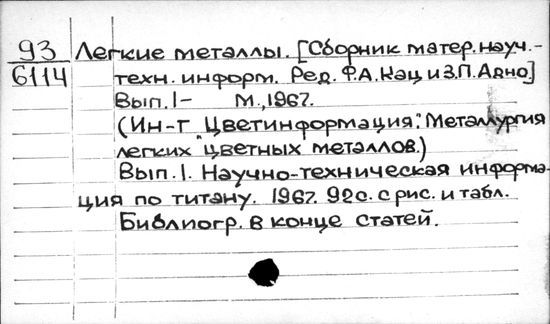 93 Легкие металлы. [Сборник матер. науч.-
6114 техн. информ. Ред. Ф.А. Кац и З.П. Адно]
Вып. I- М., 1967.
(Ин-т "Цветинформация". Металлургия
легких цветных металлов.)
Вып. I. Научно-техническая информа-
ция по титану. 1967. 92 с. с рис. и табл.
Библиогр. в конце статей.